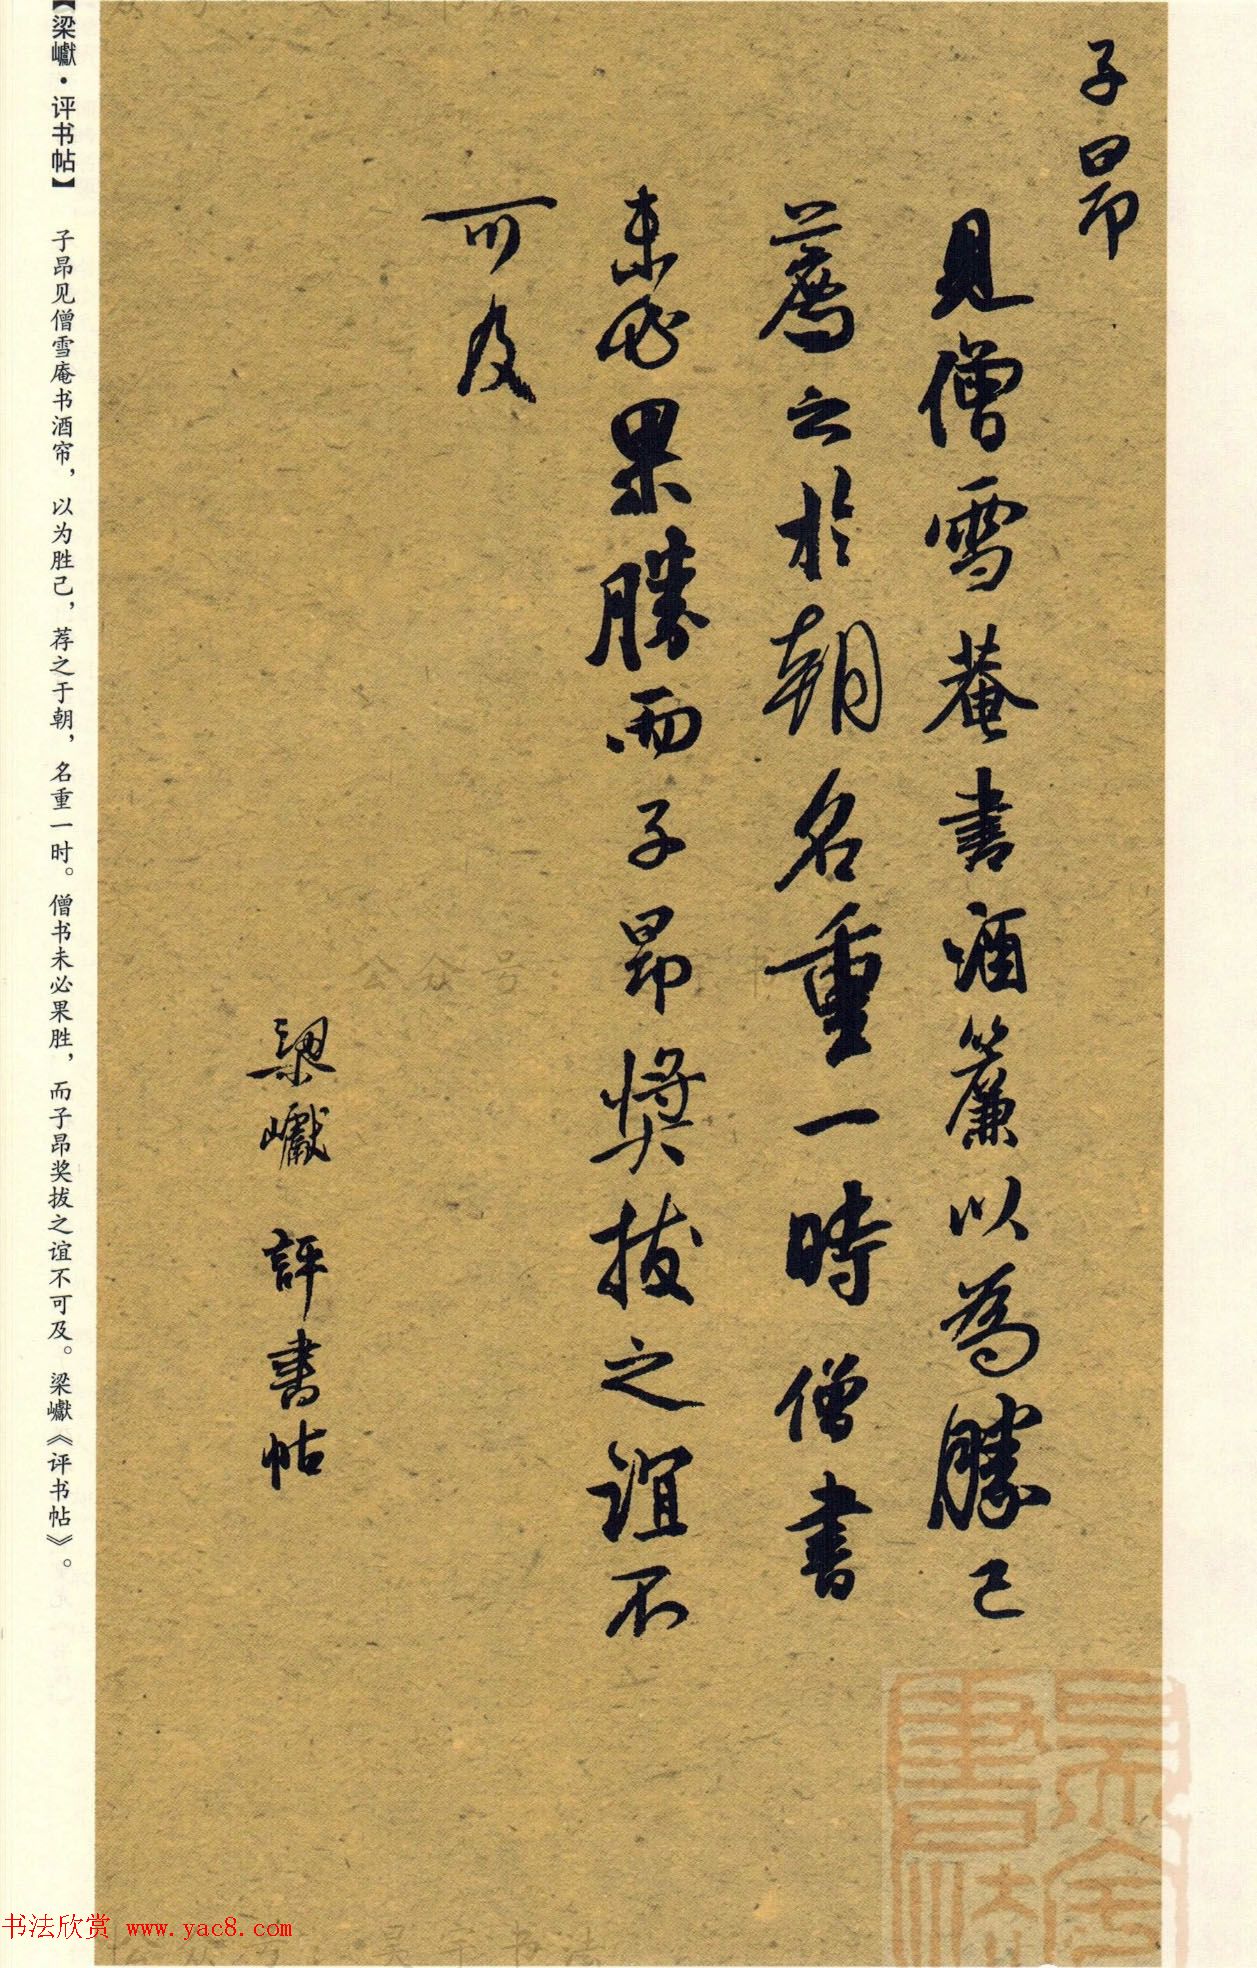 子昂
見僧雪菴書酒簾以為勝己
薦之於朝名重一時僧書
未必果勝而子昂獎拔之誼不
可及
梁巘 評書帖
【梁巘·评书帖】 子昂见僧雪庵书酒帘，以为胜己，荐之于朝，名重一时。僧书未必果胜，而子昂奖拔之谊不可及。梁巘《评书帖》。
公众号：
书法欣赏 www.yac8.com